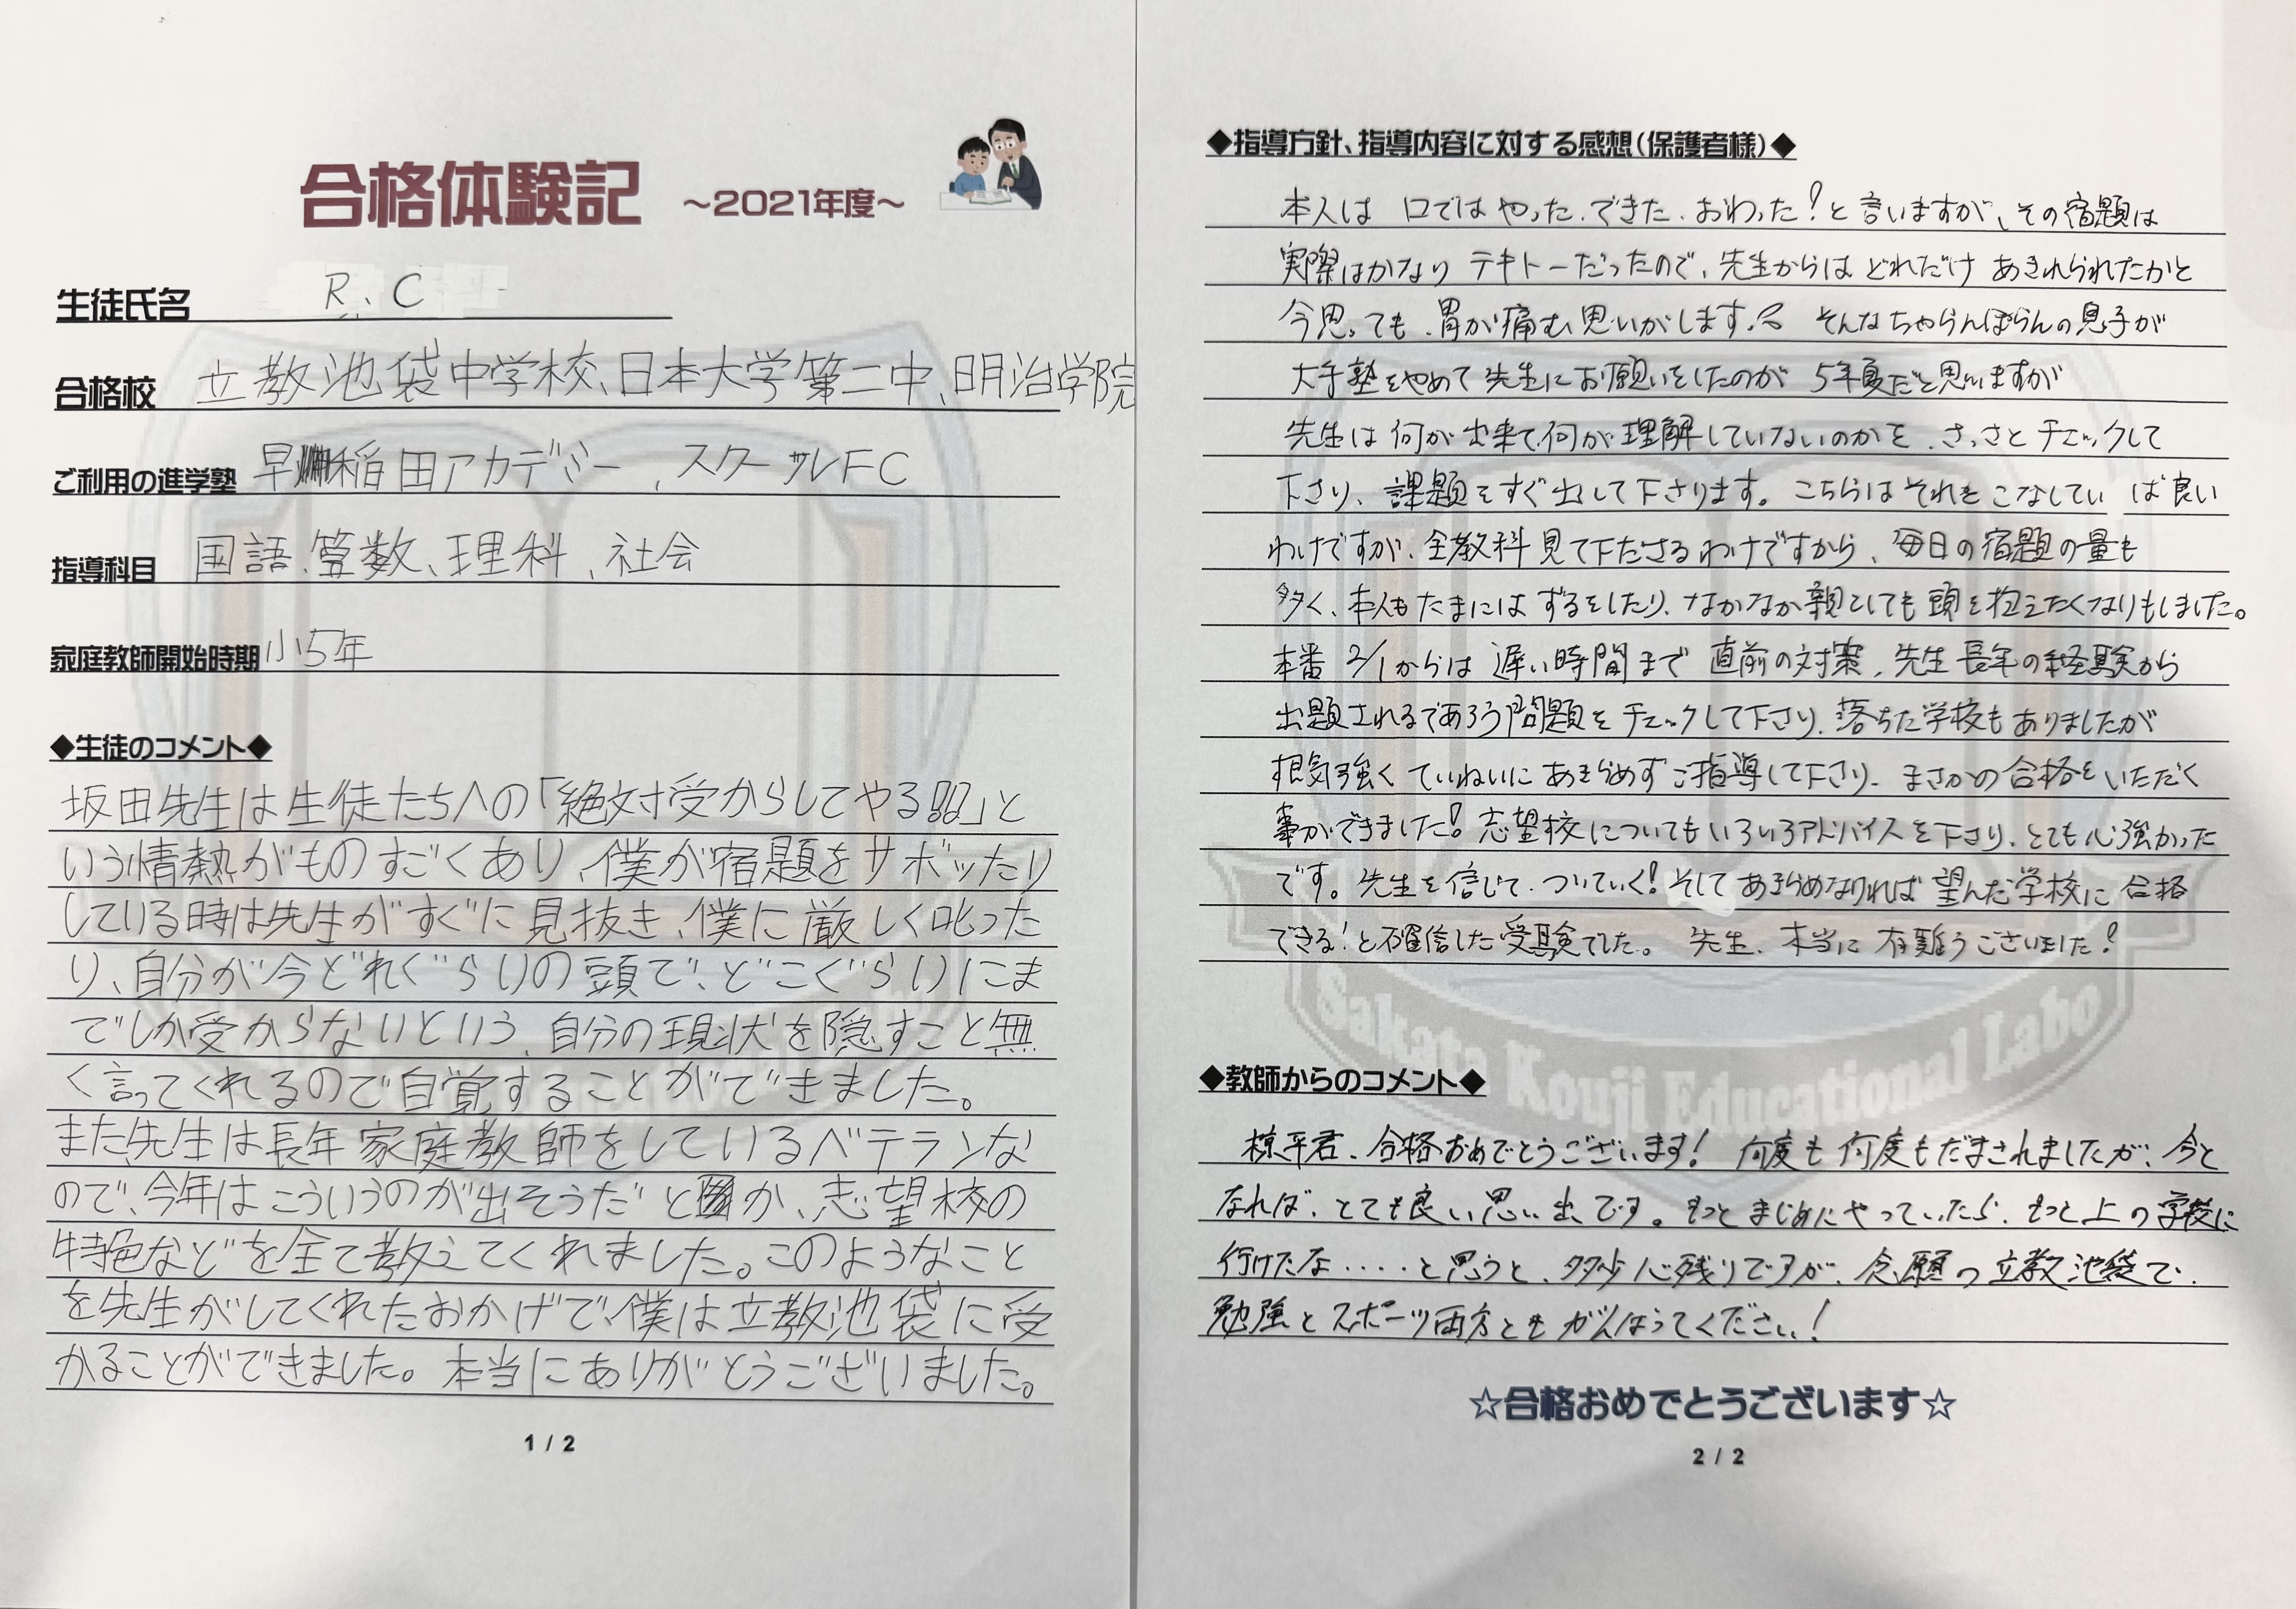 合格体験記 ～2021年度～
生徒氏名 R、C
合格校 立教池袋中学校、日本大学第二中、明治学院
ご利用の進学塾 早稲田アカデミー、スクールFC
指導科目 国語、算数、理科、社会
家庭教師開始時期 小5年
◆生徒のコメント◆
坂田先生は生徒たちへの「絶対受からしてやる!!」と
いう情熱がものすごくあり、僕が宿題をサボッたり
している時は先生がすぐに見抜き、僕に厳しく叱った
り、自分が今どれぐらいの頭で、どこぐらいにま
でしか受からないという、自分の現状を隠すこと無
く言ってくれるので自覚することができました。
また先生は長年家庭教師をしているベテランな
ので、今年はこういうのが出そうだとか、志望校の
特色などを全て教えてくれました。このようなこと
を先生がしてくれたおかげで、僕は立教池袋に受
かることができました。本当にありがとうございました。
1 / 2
◆指導方針、指導内容に対する感想（保護者様）◆
本人は 口では やった、できた、おわった！と言いますが、その宿題は
実際はかなり テキトーだったので、先生からは どれだけ あきれられたかと
今思っても、胃が痛む思いがします。 そんなちゃらんぽらんの息子が
大手塾をやめて 先生にお願いをしたのが 5年夏だと思いますが
先生は 何が出来て、何が理解していないのかを、さっさと チェックして
下さり、課題をすぐ出して下さります。こちらはそれを こなしてい ば良い
わけですが、全教科見て下ださるわけですから、毎日の宿題の量も
多く、本人もたまには ずるをしたり、なかなか親としても頭を抱えたくなりもしました。
本番 2/1からは 遅い時間まで 直前の対策、先生長年の経験から
出題されるであろう問題を チェックして下さり、落ちた学校も ありましたが
根気強く ていねいに あきらめず ご指導して下さり、まさかの合格を いただく
事ができました！志望校についても いろいろアドバイスを下さり、とても心強かった
です。先生を信じて、ついていく！そして あきらめなければ 望んだ学校に 合格
できる！と確信した受験でした。 先生、本当に 有難うございました！
Sakata Kouji Educational Labo
◆教師からのコメント◆
椋平君、合格おめでとうございます！ 何度も何度もだまされましたが、今と
なれば、とても良い思い出です。もっとまじめにやっていたら、もっと上の学校に
行けたな・・・・と思うと、多少心残りですが、念願の立教池袋で、
勉強とスポーツ両方とも がんばってください！
☆合格おめでとうございます☆
2 / 2